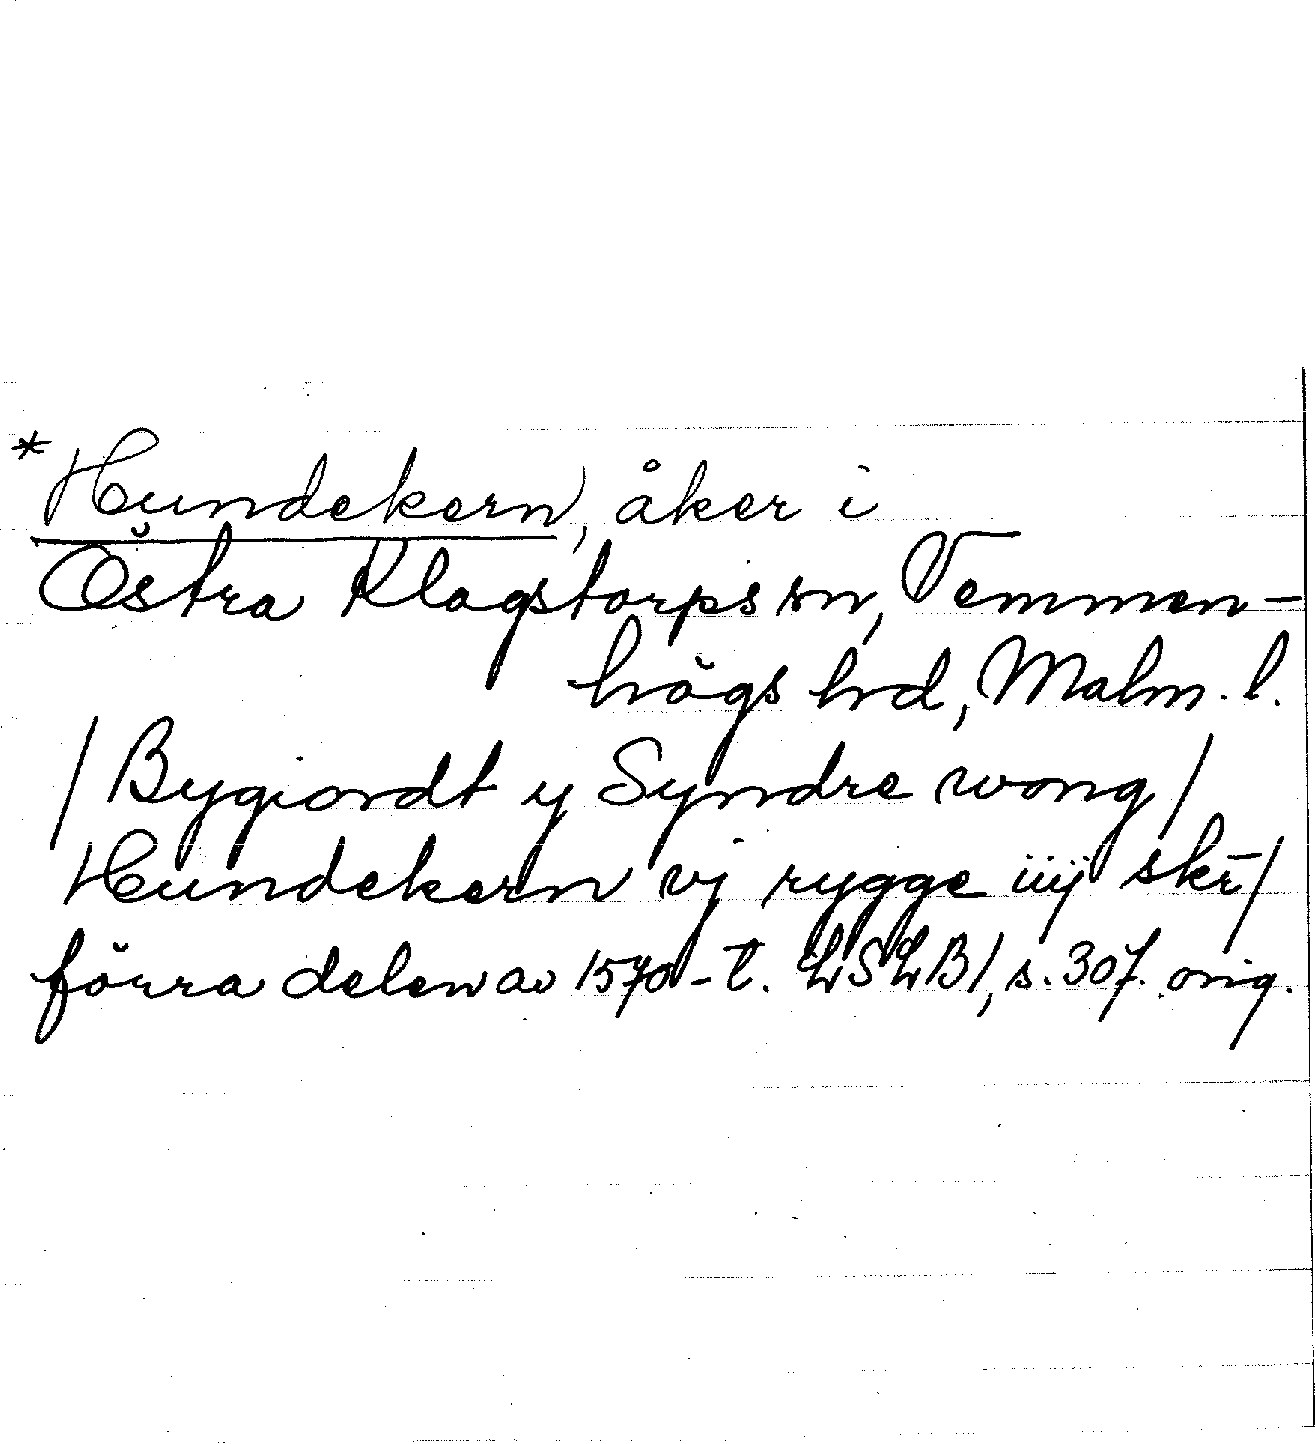 *Hundekern, åker i
Östra Klagstorps sn, Vemmen-
högs hd, Malm. l.
/Bygiordt y Syndre wong/
Hundekern vj rygge iiij skr̄/
förra delen av 1570-t. LSLB1, s. 307. orig.